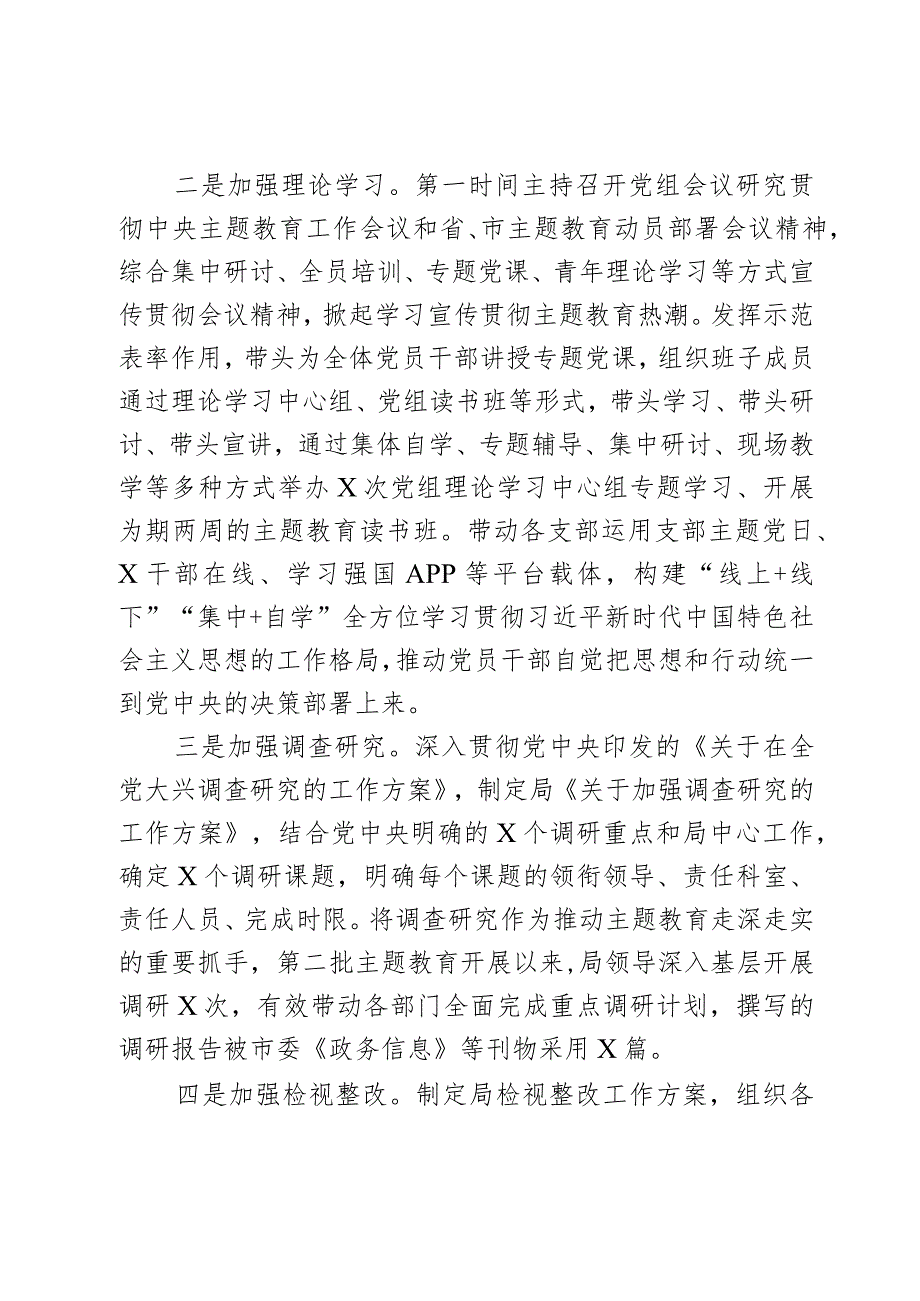 二是加强理论学习。第一时间主持召开党组会议研究贯
彻中央主题教育工作会议和省、市主题教育动员部署会议精神，
综合集中研讨、全员培训、专题党课、青年理论学习等方式宣
传贯彻会议精神，掀起学习宣传贯彻主题教育热潮。发挥示范
表率作用，带头为全体党员干部讲授专题党课，组织班子成员
通过理论学习中心组、党组读书班等形式，带头学习、带头研
讨、带头宣讲，通过集体自学、专题辅导、集中研讨、现场教
学等多种方式举办 X 次党组理论学习中心组专题学习、开展
为期两周的主题教育读书班。带动各支部运用支部主题党日、
X 干部在线、学习强国 APP 等平台载体，构建“线上+线
下”“集中+自学”全方位学习贯彻习近平新时代中国特色社
会主义思想的工作格局，推动党员干部自觉把思想和行动统一
到党中央的决策部署上来。
三是加强调查研究。深入贯彻党中央印发的《关于在全
党大兴调查研究的工作方案》，制定局《关于加强调查研究的
工作方案》，结合党中央明确的 X 个调研重点和局中心工作，
确定 X 个调研课题，明确每个课题的领衔领导、责任科室、
责任人员、完成时限。将调查研究作为推动主题教育走深走实
的重要抓手，第二批主题教育开展以来,局领导深入基层开展
调研 X 次，有效带动各部门全面完成重点调研计划，撰写的
调研报告被市委《政务信息》等刊物采用 X 篇。
四是加强检视整改。制定局检视整改工作方案，组织各